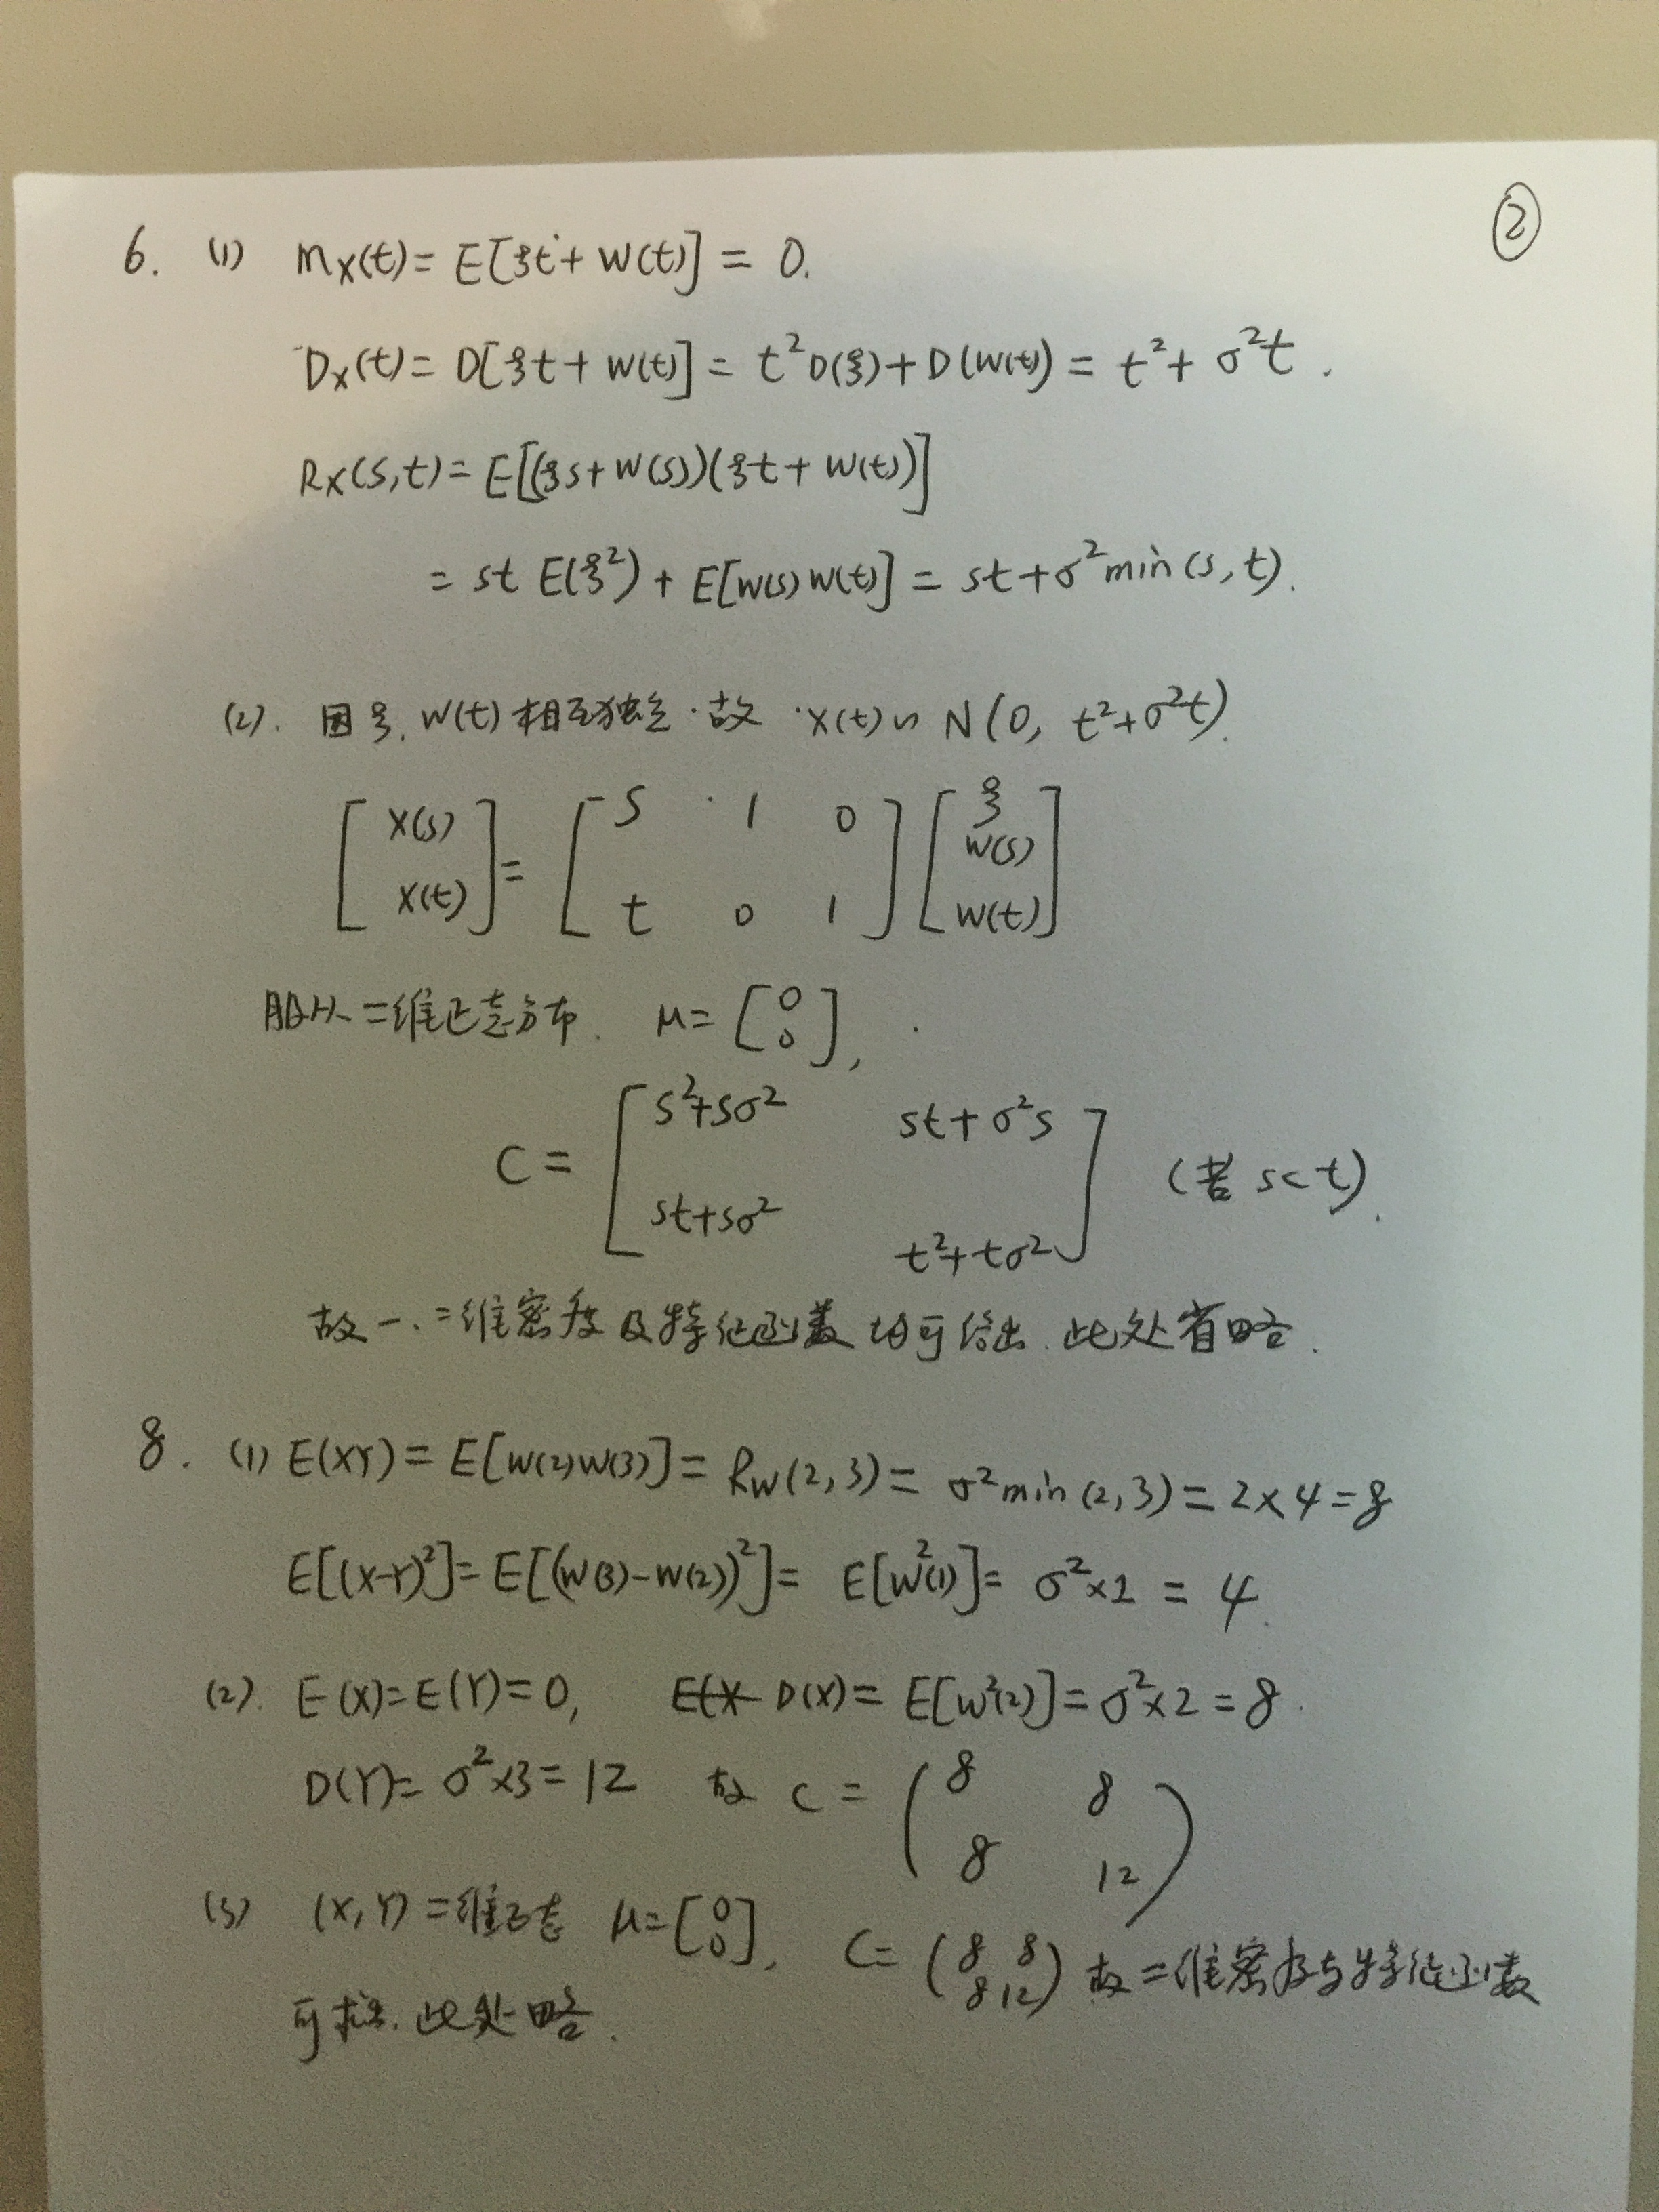 ②
6. (1) m_X(t) = E[ξt + W(t)] = 0.
D_X(t) = D[ξt + W(t)] = t²D(ξ) + D(W(t)) = t² + σ²t.
R_X(s,t) = E[(ξs + W(s))(ξt + W(t))]
= st E(ξ²) + E[W(s)W(t)] = st + σ² min(s,t).
(2). 因ξ, W(t)相互独立.故 X(t) ~ N(0, t²+σ²t).
[X(s) X(t)] = [s 1 0; t 0 1] [ξ W(s) W(t)]
服从二维正态分布. μ = [0 0],
C = [s²+sσ² st+σ²s; st+sσ² t²+tσ²] (若 s<t).
故一.二维密度及特征函数均可给出.此处省略.
8. (1) E(XY) = E[W(2)W(3)] = R_W(2,3) = σ² min(2,3) = 2×4 = 8
E[(X-Y)²] = E[(W(3)-W(2))²] = E[W²(1)] = σ²×1 = 4.
(2). E(X)=E(Y)=0, D(X) = E[W²(2)] = σ²×2 = 8.
D(Y) = σ²×3 = 12 故 C = (8 8; 8 12)
(3) (X,Y)二维正态 μ=[0 0], C = (8 8; 8 12) 故二维密度与特征函数
可求.此处略.